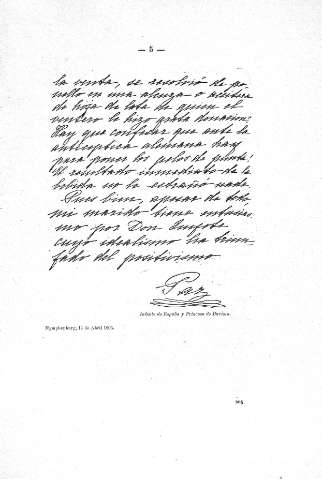 — 5 —
la venta, se resolvió de po-
nello en una alcuza o aceitera
de hoja de lata de quien el
ventero le hizo grata donación.
Hay que confesar que ante la
antiséptica alemana hay
para poner los pelos de punta!
El resultado inmediato de la
bebida no le extrañó nada.
Pues bien, apesar de todo,
mi marido tiene entusias-
mo por Don Quijote
cuyo idealismo ha triun-
fado del positivismo
Paz
Infanta de España y Princesa de Baviera.
Nymphenburg, 15 de Abril 1905.